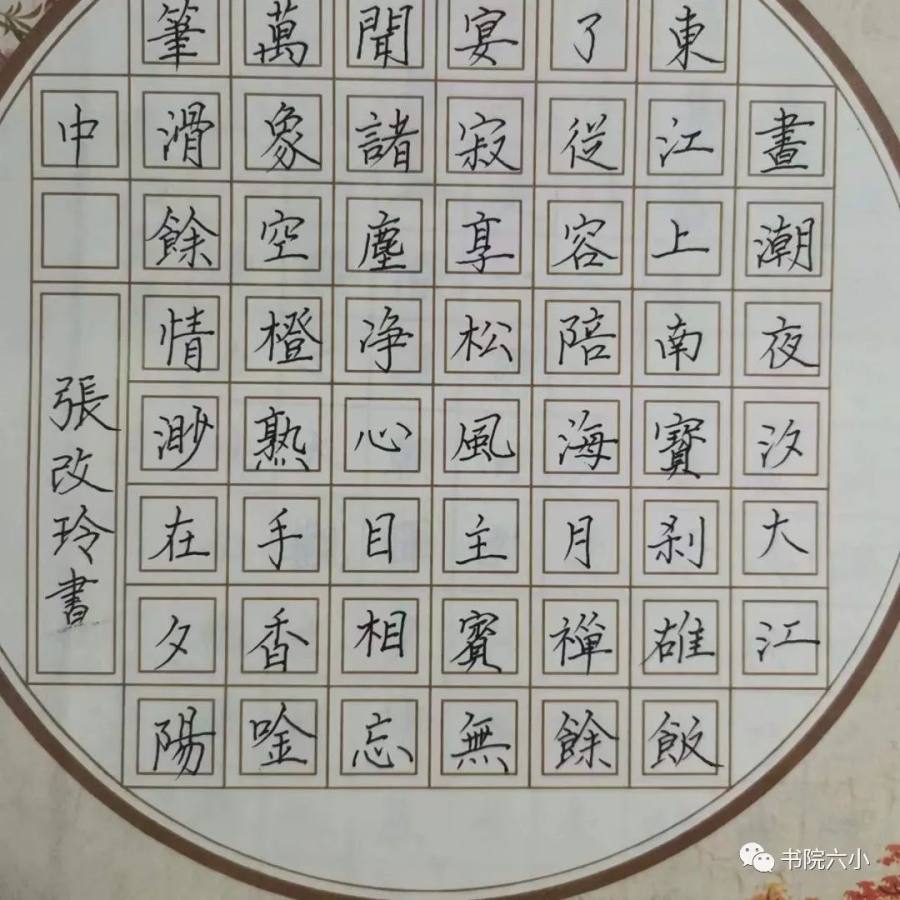 晝潮夜汐大江
東江上南寶刹雄飯
了從容陪海月禪餘
宴寂享松風主賓無
聞諸塵净心目相忘
萬象空橙熟手香唫
筆滑餘情渺在夕陽
中
張改玲書
书院六小